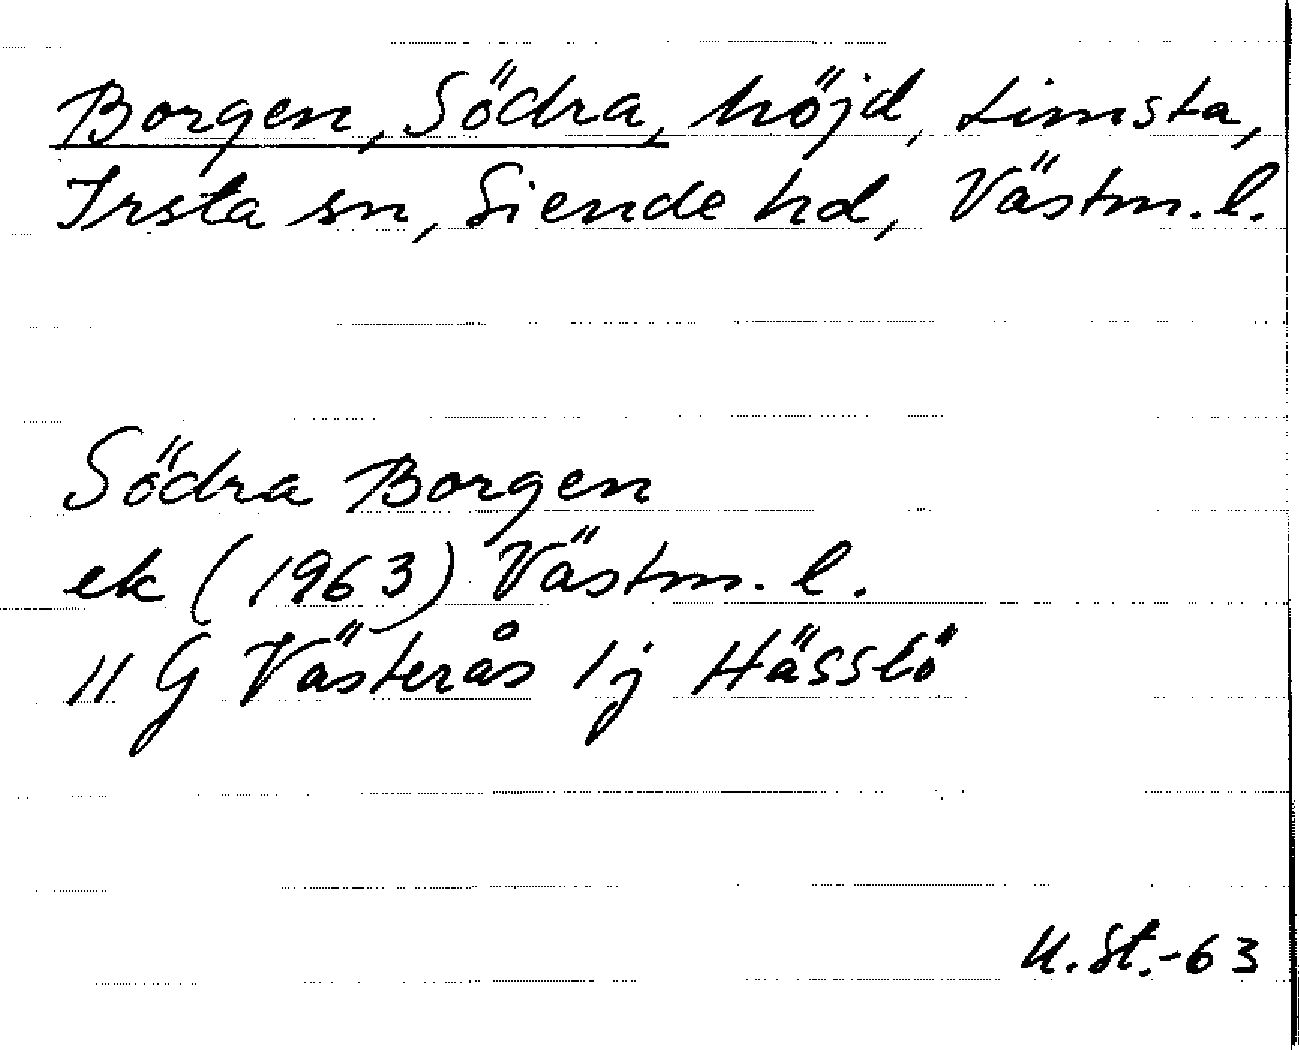 Borgen, Södra, höjd, Limsta,
Irsta sn, Siende hd, Västm. l.
Södra Borgen
ek (1963) Västm. l.
11 G Västerås 1j Hässlö
U. St.-63